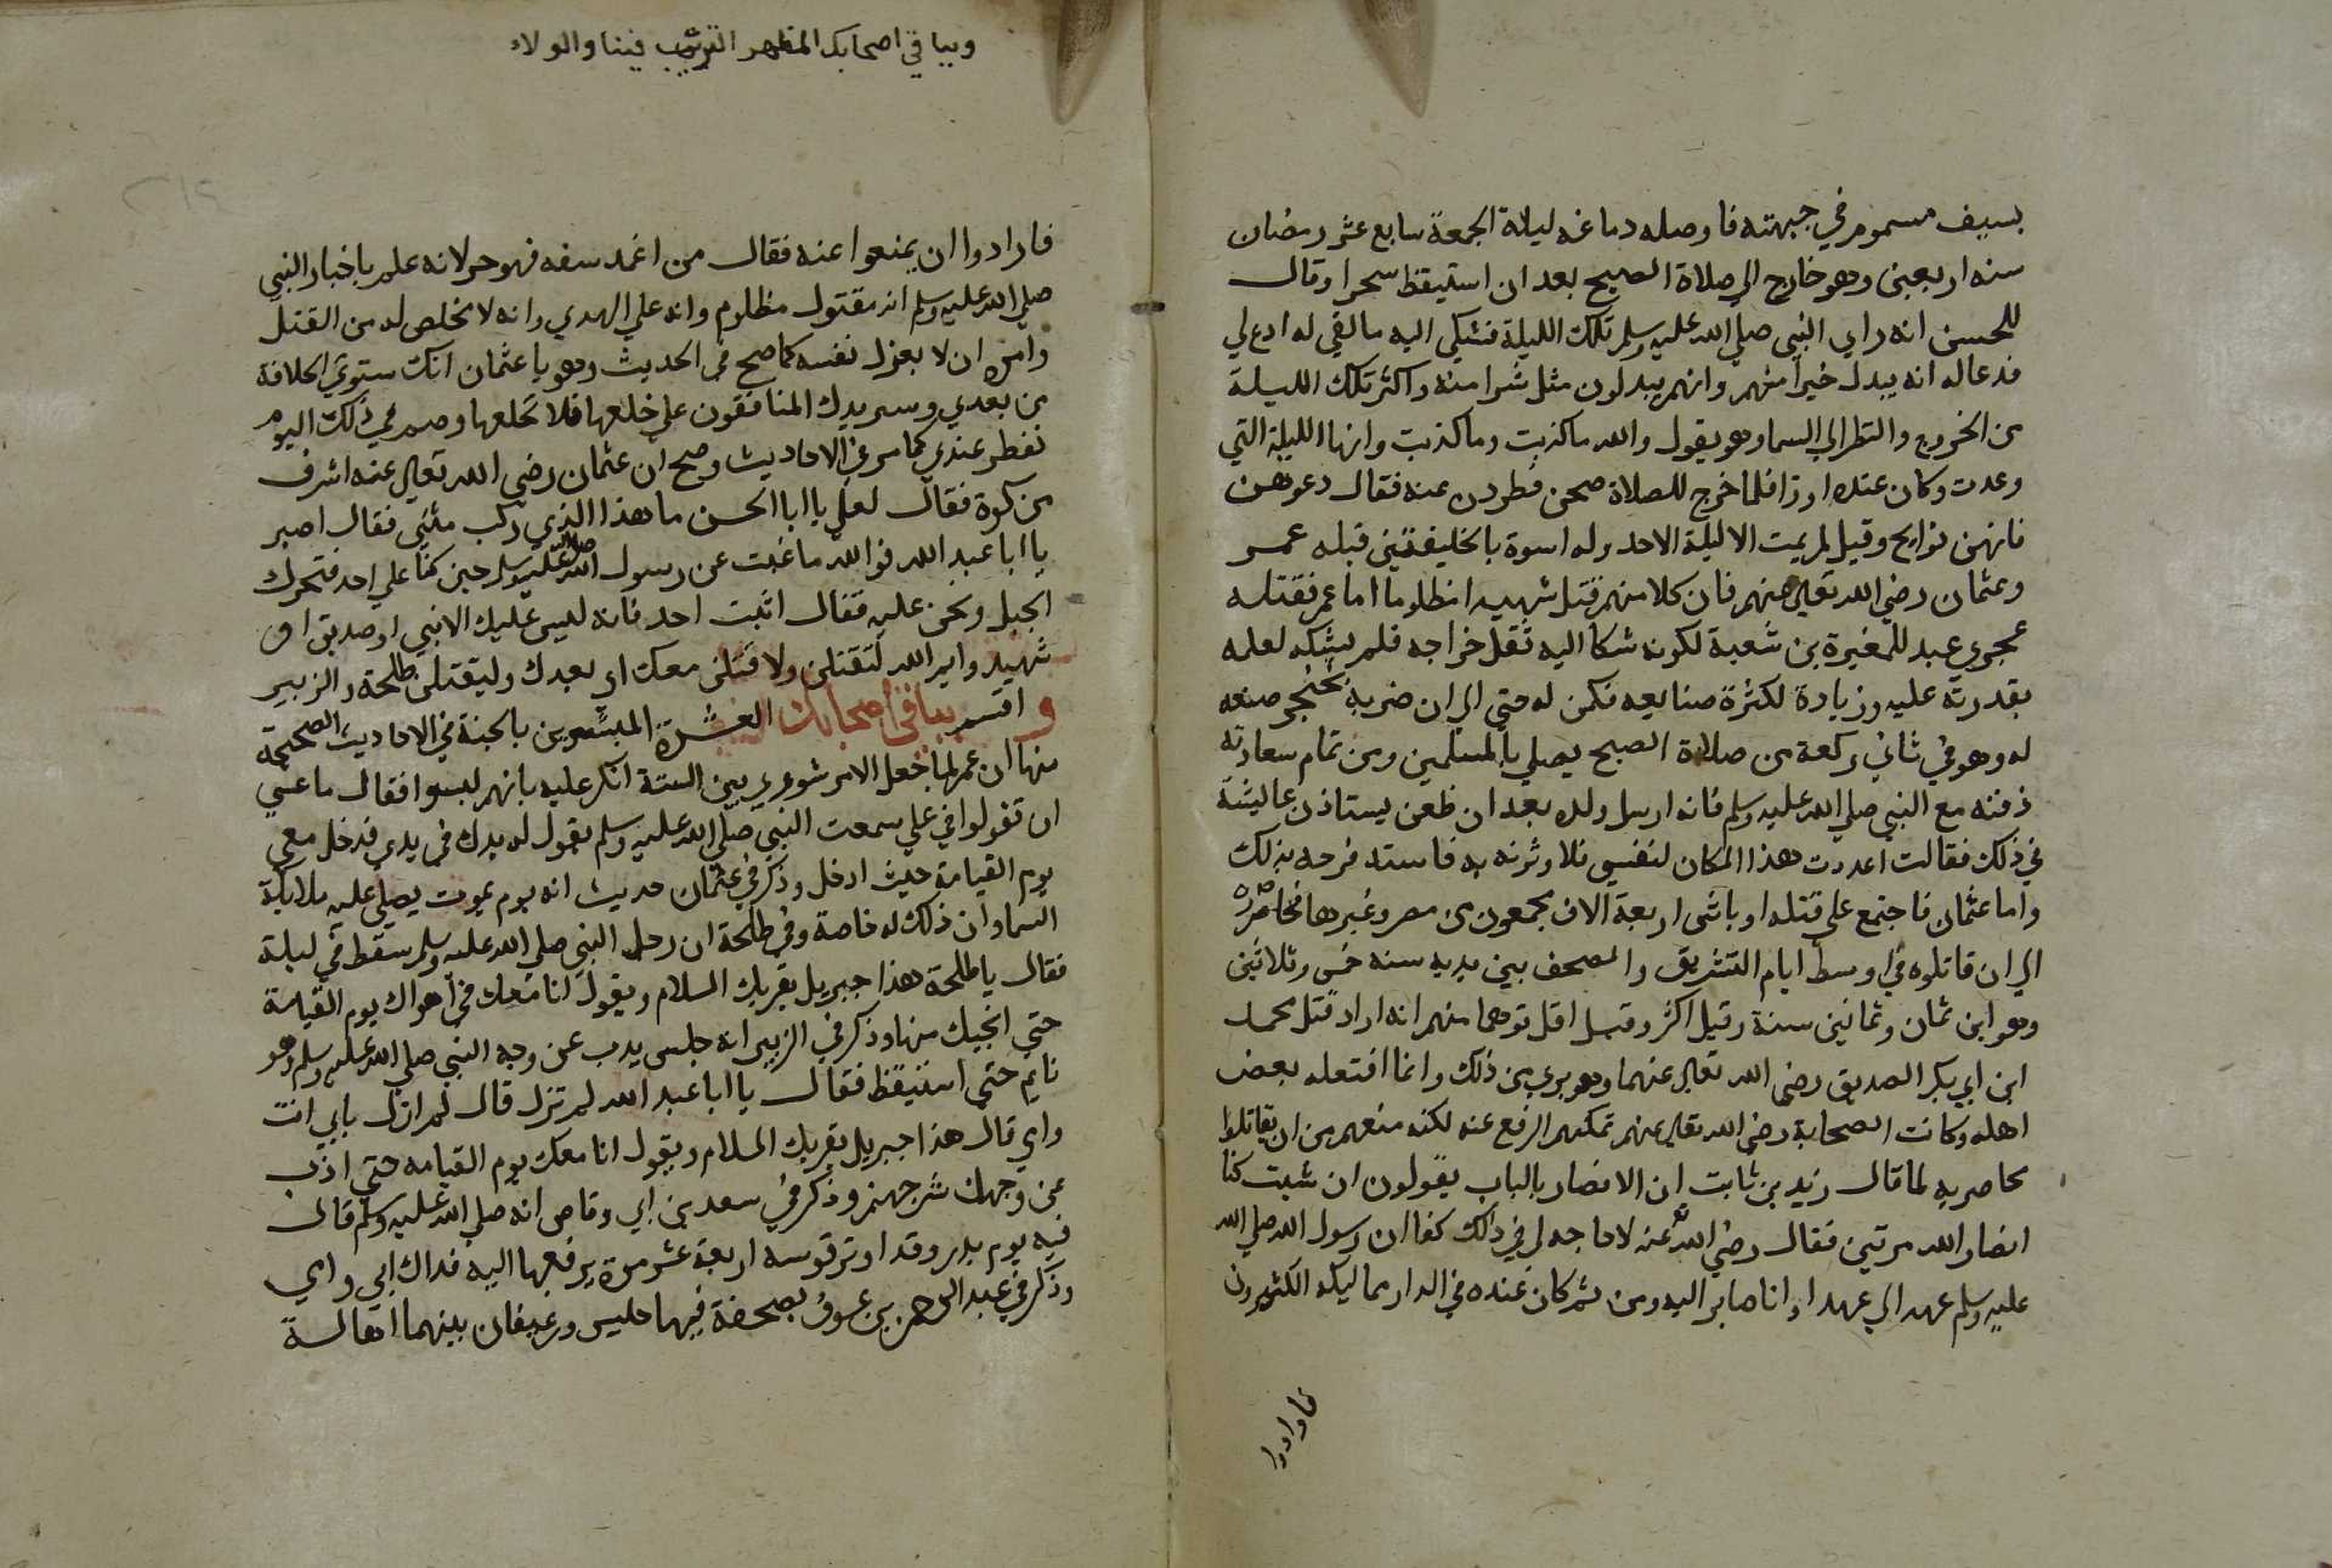 بسيف مسموم في جبهته فاوصله دماغه ليلة الجمعة سابع عشر رمضان
سنه اربعين وهو خارج الي صلاة الصبح بعد ان استيقظ سحرا وقال
للحسن انه راي النبي صلي الله عليه وسلم تلك الليلة فشكي اليه ما لقي له ادع لي
فدعاله انه يبدل خيرا منهم وانهم يبدلون مثل شرا منه واكثر تلك الليلة
من الخروج والنظر الي السما وهو يقول والله ما كذبت وما كذبت وانها الليلة التي
وعدت وكان عنده اوز فلما خرج للصلاة صحن فطردن عنه فقال دعوهن
فانهن نوايح وقيل لم يمت الا ليلة الاحد وله اسوة بالخليفتين قبله عمر
وعثمان رضي الله تعالي عنهم فان كلا منهم قتل شهيدا مظلوما اما عمر فقتله
عجوي عبد للمغيرة بن شعبة لكونه شكا اليه ثقل خراجه فلم يشكه لعلمه
بقدرته عليه وزيادة لكثرة صنايعه فكمن له حتي الي ان ضربه بخنجر صنعه
له وهو في ثاني ركعة من صلاة الصبح يصلي بالمسلمين ومن تمام سعادته
دفنه مع النبي صلي الله عليه وسلم فانه ارسل ولده بعد ان طعن يستاذن عاليشة
في ذلك فقالت اعددت هذا المكان لنفسي فلا وثرنه به فاستد فرحه بذلك
واما عثمان فاجتمع علي قتله اوباش اربعة الاف مجمعون من مصر وغيرها فحاصره
الي ان قاتلوه في اوسط ايام التشريق والمصحف بين يديه سنه خمس وثلاثين
وهو ابن ثمان وثمانين سنة وقيل اكثر وقيل اقل توهما منهم انه اراد قتل محمد
ابن ابي بكر الصديق رضي الله تعالي عنهما وهو بري من ذلك وانما افتعله بعض
اهله وكانت الصحابة رضي الله تعالي عنهم تمكنهم الرفع عنه لكنه منعهم من ان يقاتلوا
محاصريه لما قال زيد بن ثابت ان الانصار بالباب يقولون ان شيت كنا
انصار الله مرتين فقال رضي الله تع عنه لا حاجه لي في ذلك كفا ان رسول الله صلي الله
عليه وسلم عهد الي عهدا وانا صابر اليه ومن ثم كان عنده في الدار مماليكه الكثيرون
فارادوا
وبباقي اصحابك المظهر الترتيب فينا والولاء
فارادوا ان يمنعوا عنه فقال من اغمد سفه فهو حر لانه علم باخبار النبي
صلي الله عليه وسلم انه مقتول مظلوم وانه علي الهدي وانه لا مخلص له من القتل
وامره ان لا يعزل نفسه كما صح في الحديث وهو يا عثمان انك ستوتي الخلافة
من بعدي وسيريدك المنافقون علي خلعها فلا تخلعها وصم في ذلك اليوم
تفطر عندي كما مر في الاحاديث وصح ان عثمان رضي الله تعالي عنه اشرف
من كوة فقال لعلي يا ابا الحسن ما هذا الذي ركب متني فقال اصبر
يا ابا عبد الله فوالله ما غبت عن رسول الله صلي الله عليه وسلم حين كنا علي احد فتحرك
الجبل ونحن عليه فقال اثبت احد فانه ليس عليك الا نبي او صديق او
شهيد وايم الله لتقتلن ولاقتلن معك او بعدك وليقتلن طلحة والزبير
و اقسم ببباقي اصحابك العشرة المبشرين بالجنة في الاحاديث الصحيحة
منها ان عمر لما جعل الامر شوري بين الستة انكر عليه بانهم ليسوا فقال ما عسي
ان تقولوا في علي سمعت النبي صلي الله عليه وسلم يقول له يدك في يدي فدخل معي
يوم القيامة حيث ادخل وذكر في عثمان حديث انه يوم يموت يصلي عليه ملايكة
السما وان ذلك له خاصة وفي طلحة ان رحل النبي صلي الله عليه وسلم سقط في ليلة
فقال يا طلحة هذا جبريل يقريك السلام ويقول انا معك في اهوال يوم القيامة
حتي انجيك منها وذكر في الزبير انه جلس يدب عن وجه النبي صلي الله عليه وسلم وهو
نايم حتي استيقظ فقال يا ابا عبد الله لم تزل قال لم ازل بابي انت
وامي قال هذا جبريل يقريك السلام ويقول انا معك يوم القيامه حتي اذب
عن وجهك شر جهنم وذكر في سعد بن ابي وقاص انه صلي الله عليه وسلم قال
فيه يوم بدر وقد اوتر قوسه اربعة عشر مرة يرفعها اليه فداك ابي وامي
وذكر في عبد الرحمن بن عوف بصحفة فيها حليس ورغيفان بينهما اهالسة